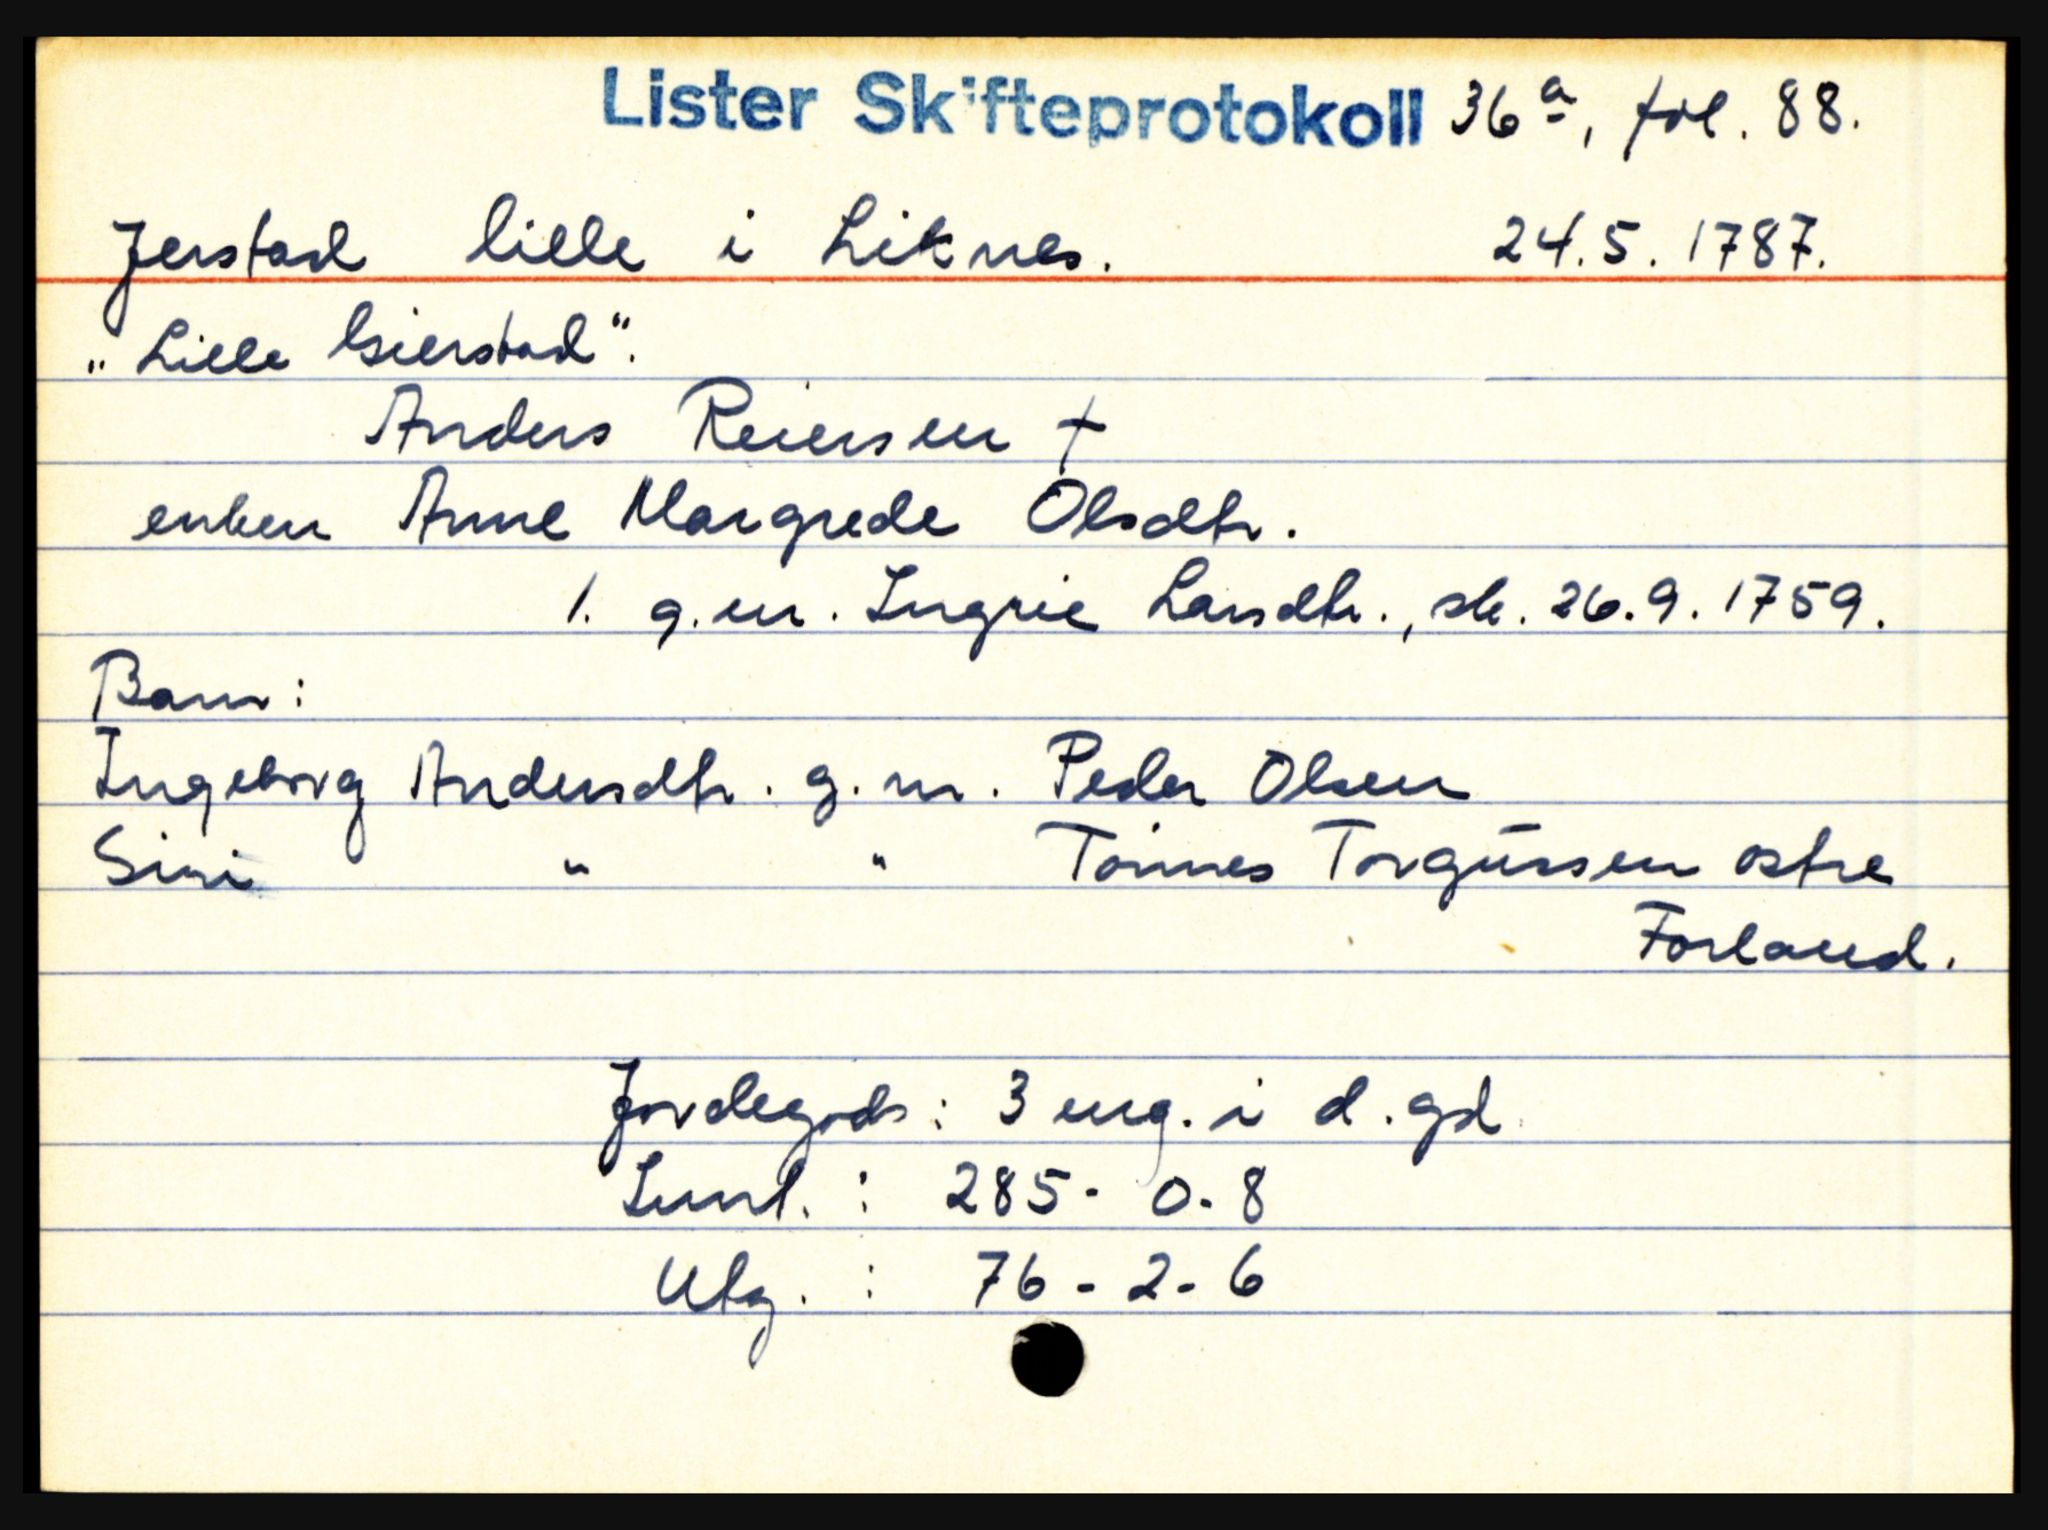 Lister Skifteprotokoll 36a, fol. 88.
Jerstad lille i Liknes. 24.5.1787.
"Lille Gierstad".
Anders Reiersen †
enken Anne Margrede Olsdtr.
1. g.m. Ingrie Larsdtr., sk. 26.9.1759.
Barn:
Ingeborg Andersdtr. g.m. Peder Olsen
Siri " " Tönnes Torgussen østre
Førland.
Jordegods: 3 eng. i d. gd.
Innt. : 285-0-8
Utg. : 76-2-6